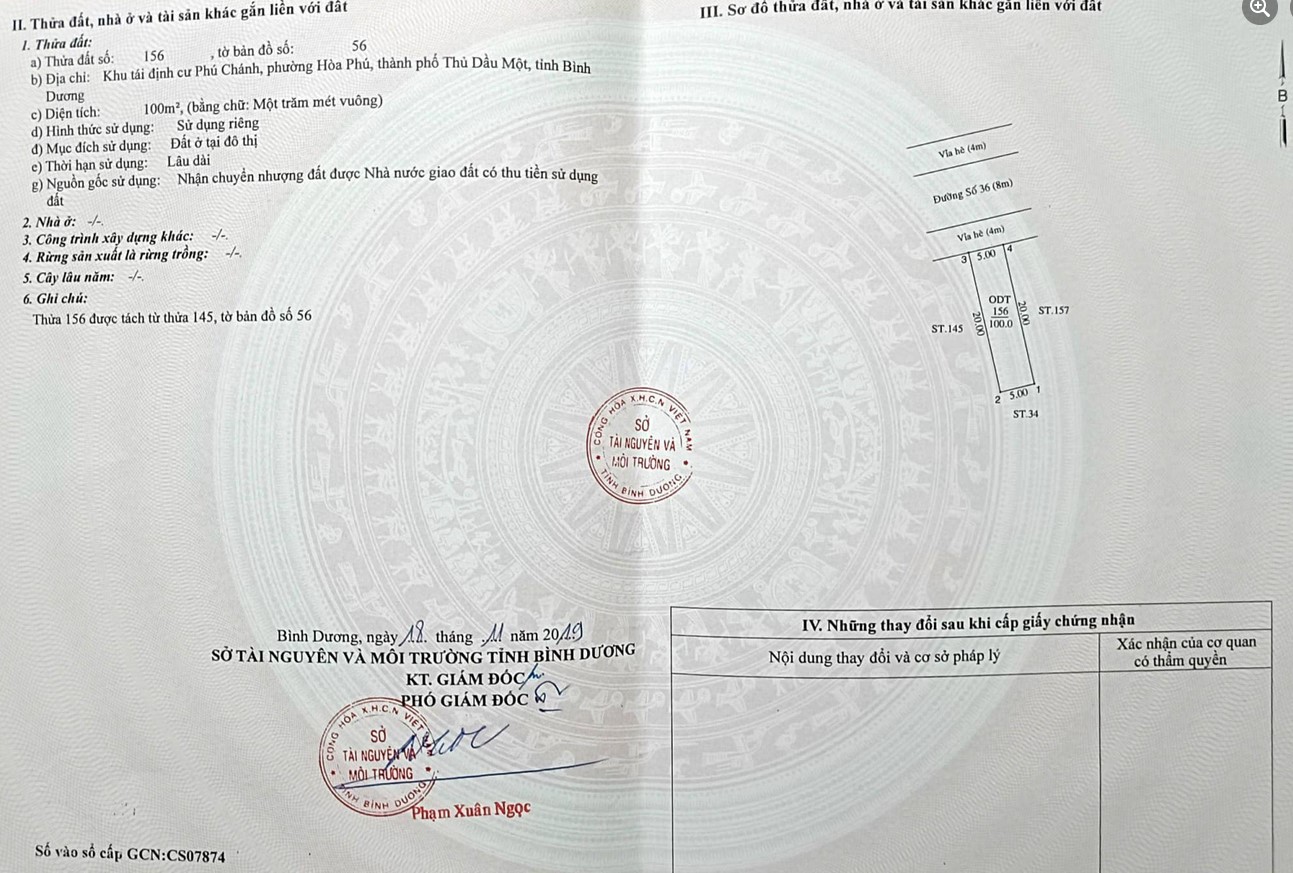 II. Thửa đất, nhà ở và tài sản khác gắn liền với đất
1. Thửa đất:
a) Thửa đất số: 156 , tờ bản đồ số: 56
b) Địa chỉ: Khu tái định cư Phú Chánh, phường Hòa Phú, thành phố Thủ Dầu Một, tỉnh Bình
Dương
c) Diện tích: 100m², (bằng chữ: Một trăm mét vuông)
d) Hình thức sử dụng: Sử dụng riêng
đ) Mục đích sử dụng: Đất ở tại đô thị
e) Thời hạn sử dụng: Lâu dài
g) Nguồn gốc sử dụng: Nhận chuyển nhượng đất được Nhà nước giao đất có thu tiền sử dụng
đất
2. Nhà ở: -/-.
3. Công trình xây dựng khác: -/-.
4. Rừng sản xuất là rừng trồng: -/-.
5. Cây lâu năm: -/-.
6. Ghi chú:
Thửa 156 được tách từ thửa 145, tờ bản đồ số 56
III. Sơ đồ thửa đất, nhà ở và tài sản khác gắn liền với đất
B
Vỉa hè (4m)
Đường Số 36 (8m)
Vỉa hè (4m)
3 5.00 4
ODT
156
100.0
20.00
20.00
ST.145
ST.157
2 5.00 1
ST.34
CỘNG HÒA X.H.C.N VIỆT NAM
SỞ
TÀI NGUYÊN VÀ
MÔI TRƯỜNG
TỈNH BÌNH DƯƠNG
Bình Dương, ngày 18. tháng .11 năm 2019
SỞ TÀI NGUYÊN VÀ MÔI TRƯỜNG TỈNH BÌNH DƯƠNG
KT. GIÁM ĐỐC
PHÓ GIÁM ĐỐC
CỘNG HÒA X.H.C.N VIỆT
SỞ
TÀI NGUYÊN VÀ
MÔI TRƯỜNG
TỈNH BÌNH DƯƠNG
Phạm Xuân Ngọc
Số vào sổ cấp GCN:CS07874
IV. Những thay đổi sau khi cấp giấy chứng nhận
Nội dung thay đổi và cơ sở pháp lý
Xác nhận của cơ quan
có thẩm quyền